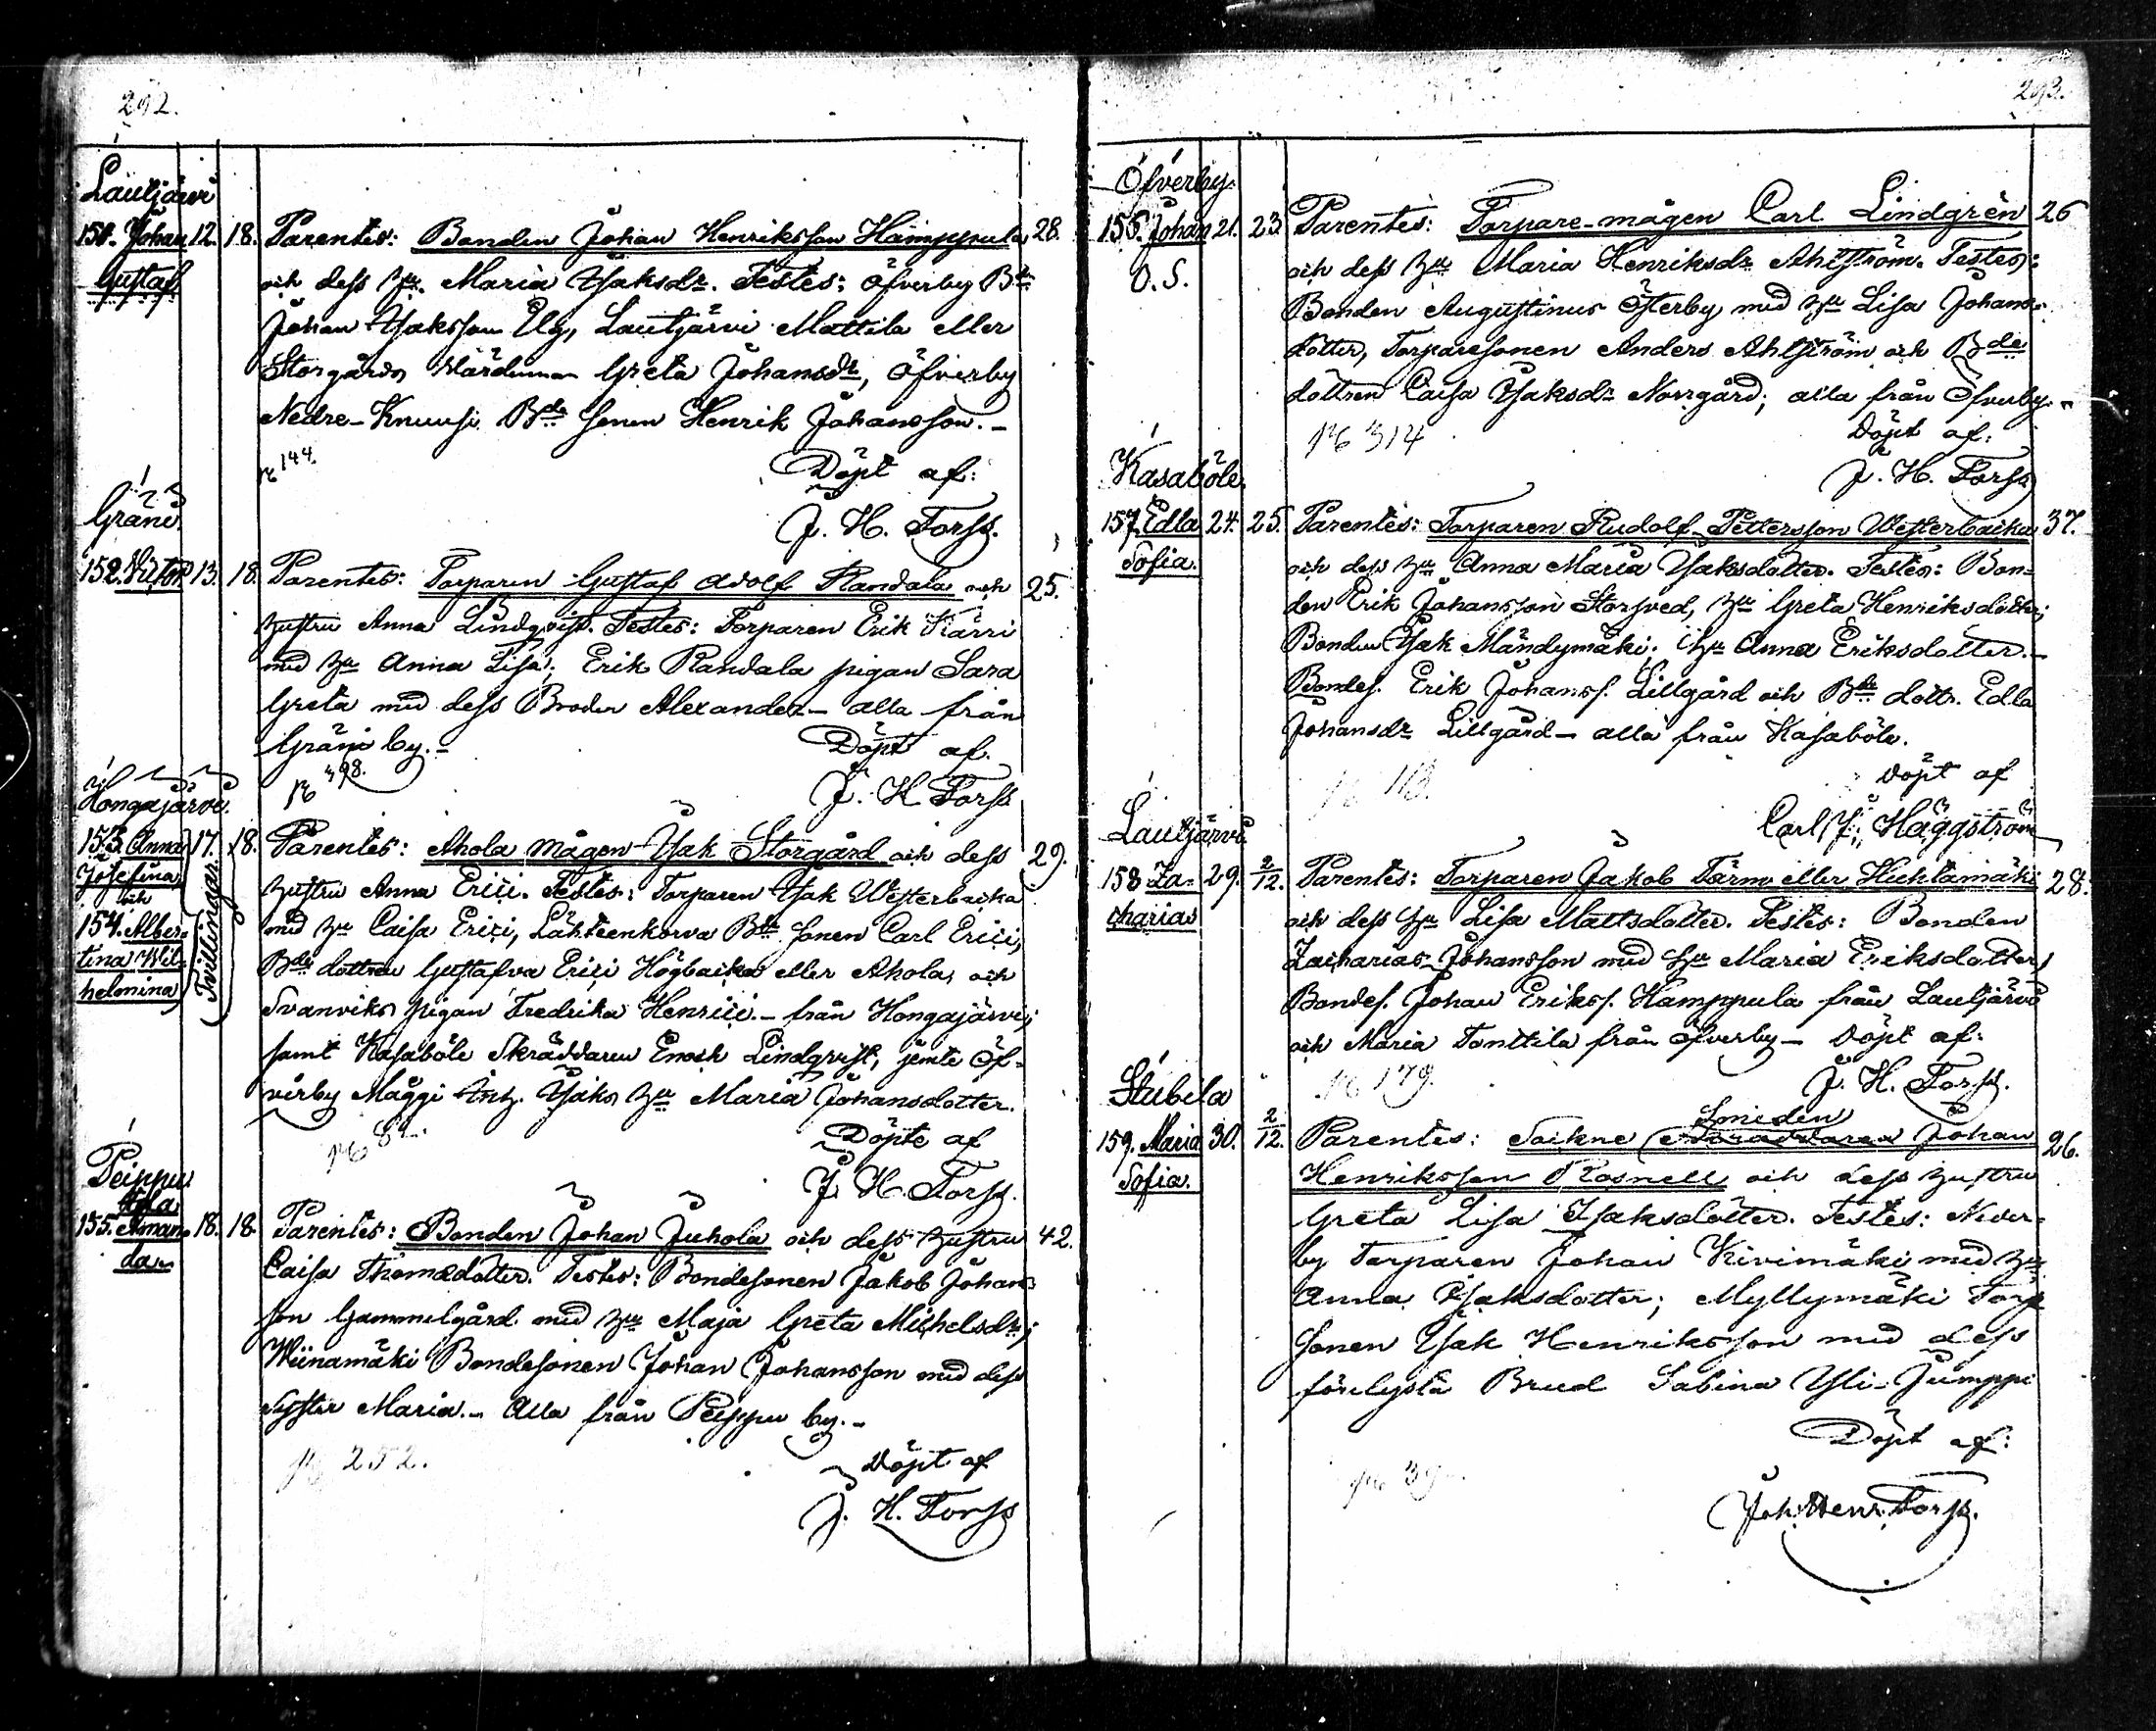 292.
Lautjärvi
151. Johan 12. 18. Parentes: Bonden Johan Henriksson Hämppula 28.
Gustaf
och dess hu. Maria Isaksdr. Testes: Öfverby Bde
Johan Isaksson Uly, Lautjärvi Mattila eller
Storgårds Värdinnan Greta Johansdr, Öfverby
Nedre-Knuusi Bde sonen Henrik Johansson. –
N 144.
Döpt af:
J. H. Forss.
Gräni
152. Victor 13. 18. Parentes: Torparen Gustaf Adolf Randala och 25.
hustru Anna Lindqvist. Testes: Torparen Erik Kärri
med hu Anna Lisa; Erik Randala pigan Sara
Greta med dess Broder Alexander – alla från
Gräni by. –
Döpt af.
N 398.
J. H. Forss
Hongajärvi.
153. Anna 17. 18. Parentes: Ahola mågen Isak Storgård och dess 29.
Josefina,
och
154. Alber-
tina Wil-
helmina
Tvillingar.
hustru Anna Erici. Testes: Torparen Isak Westerbacka
med hu Caisa Erici, Lähteenkorva Bde sonen Carl Erici,
Bde dottren Gustafva Erici Högbacka eller Ahola, och
Svanviks pigan Fredrika Henrici. – från Hongajärvi;
samt Kasaböle Skräddaren Enoch Lindqvist, jemte Öf-
verby Mäggi Isaks hu Maria Johansdotter.
Döpte af
J. H. Forss.
Peippu
155. Aman- 18. 18. Parentes: Bonden Johan Juhola och dess hustru 42.
da
Caisa Thomædotter. Testes: Bondesonen Jakob Johans-
son Gammelgård med hu Maja Greta Michelsdr;
Wiinamäki Bondesonen Johan Johansson med dess
syster Maria. – Alla från Peippu by. –
N 252.
Döpt af
J. H. Forss
293.
Öfverby.
156. Johan 21. 23. Parentes: Torpare-mågen Carl Lindgrén 26
O. S.
och dess hu Maria Henriksdr Ahlström. Testes:
Bonden Augustinus Österby med hu Lisa Johans-
dotter, Torparesonen Anders Ahlström och Bde
dottren Caisa Isaksdr Norrgård; alla från Öfverby. –
N 314
Döpt af:
J. H. Forss
Kasaböle.
157. Edla 24. 25. Parentes: Torparen Rudolf Pettersson Westerbacka 37.
Sofia.
och dess hu Anna Maria Isaksdotter. Testes: Bon-
den Erik Johansson Storsved, hu Greta Henriksdotter;
Bonden Isak Mändymäki. hu Anna Eriksdotter. –
Bondes. Erik Johanss. Lillgård och Bde dottr. Edla
Johansdr Lillgård – alla från Kasaböle.
N 113.
Döpt af
Carl J. Häggström
Lautjärvi.
158 Za- 29. 2/12. Parentes: Torparen Jakob Tärm eller Huhtamäki 28.
charias
och dess hu Lisa Mattsdotter. Testes: Bonden
Zacharias Johansson med hu Maria Eriksdotter,
Bondes. Johan Erikss. Hamppula från Lautjärvi
och Maria Tonttila från Öfverby – Döpt af:
N 179.
J. H. Forss.
Stubila
Smeden
159. Maria 30. 2/12. Parentes: Sockne Johan 26.
Sofia.
Henriksson Rosnell och dess hustru
Greta Lisa Isaksdotter. Testes: Neder-
by Torparen Johan Kivimäki med hu
Anna Isaksdotter; Myllymäki Torp
sonen Isak Henriksson med dess
förelysta Brud Sabina Yli-Jumppi
Döpt af:
Joh. Henr. Forss.